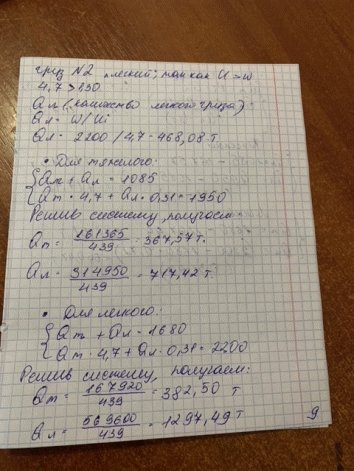 груз N2 легкий, так как U > w
4,7 > 1,30
Qл (количество легкого груза)
Qл = W/Ui
Qл = 2200/4,7 = 468,08 т.
• Для тяжелого:
Qт + Qл = 1085
Qт · 4,7 + Qл · 0,31 = 1950
Решив систему, получаем:
Qт = 161365/439 = 367,57 т.
Qл = 314950/439 = 717,42 т.
• Для легкого:
Qт + Qл = 1680
Qт · 4,7 + Qл · 0,31 = 2200
Решив систему, получаем:
Qт = 167920/439 = 382,50 т
Qл = 569600/439 = 1297,49 т
9